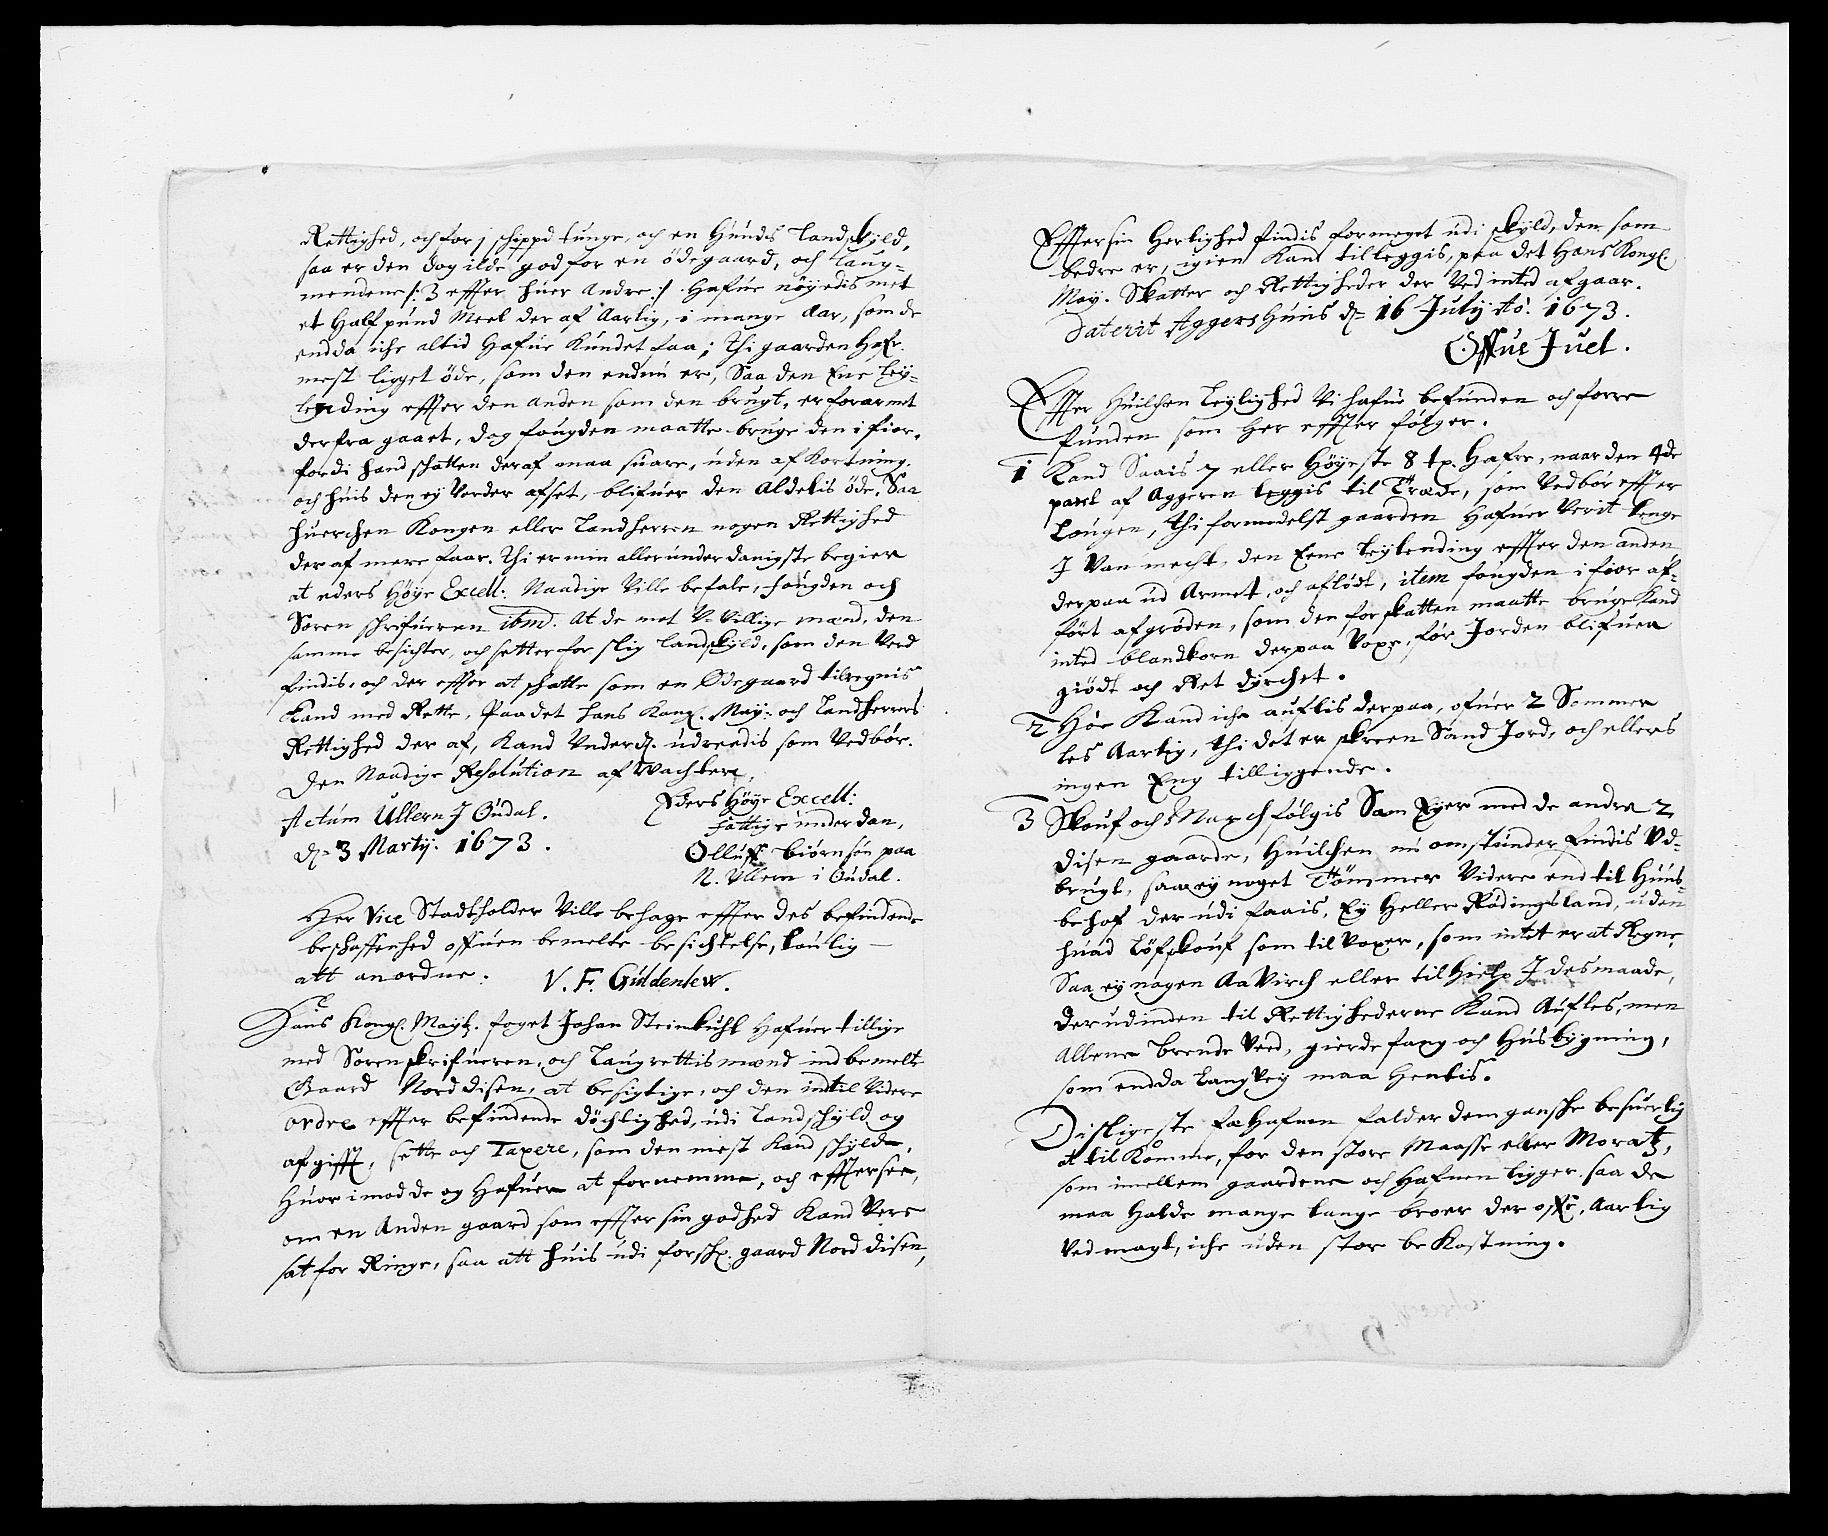 Rettighed, och for j schippd tunge, och en Hunds Landskyld,
saa er den dog ilde god for en ödegaard, och Laug-
mendene /: 3 effter huer Andre :/ Hafue nöyedis met
et Half pund Meel der af Aarlig, i mange Aar, som de
endda iche altid Hafue Kundet faa; Thi gaarden Hafr
mest ligget öde, som den endnu er, Saa den Ene Ley-
lending effter den Anden som den brugt, er forarmet
derfra gaaet, dog fougden maatte bruge den i fior,
fordi hand schatten deraf maa suare, uden afkortning.
och huis den ey Vorder afset, blifuer den Aldelis öde, Saa
huerchen Kongen eller Landherren nogen Rettighed
der af mere faar. Thi er min allerunderdanigste begier
at eders Höye Excell: Naadige Ville befale, fougden och
Sorenschrifueren ibm. At de met U-Villige mænd, den
samme besichter, och setter for slig landskyld, som den Verd
findis, och der effter at schatte som en Ödegaard tilregnis
Kand med Rette, Paa det hans Kong. May: och Landherrens
Rettighed der af, Kand Underd. udreedis som Vedbör.
Den Naadige Resolution afwachter,
Actum Ullern J Oudal. Eders Höye Excell:
d= 3 Marty. 1673. fattige underdan,
Olluff Biörnsön paa
N. Ullern i Oudal.
Her Vice Stadtholder Ville behage effter des befindende
beschaffenhed offuen bemelte besichtelse, loulig
att anordne. V. F. Güldenlew.
Hans Kongl. Mayts. foget Johan Steinkuhl Hafuer tillige
med Sorenskrifueren, och Laugrettismænd indbemelte
Gaard Nord disen, at besigtige, och den indtil Videre
ordre effter befindende döchtighed, udi Landschyld og
afgifft, sette och Taxere, som den mest Kand schylde,
Huor imod de og Hafuer at fornemme, och efftersee,
om en Anden gaard som effter sin godhed Kand Vere
sat for Ringe, saa att huis udi forschr. gaard Nord disen,
Effter sin Herlighed findis formeget udi skyld, den som
bedre er, igien Kand tilleggis, paa det Hans Kongl.
May. Skatter och Rettigheder der Ved inted afgaar.
Daterit Aggershuus d= 16 July Ao. 1673.
Offue Juel.
Effter Huilchen Leylighed Vi hafue befunden och forre
funden som her effter fölger.
1 Kand Saais 7 eller Höyeste 8 tr. Hafre, naar den 4de
part af Aggeren leggis til Træde, som Vedbör effter
Lougen, thi formedelst gaarden Hafuer Verit lenge
J Van mecht, den Eene leylending effter den anden
derpaa ud Armet, och aflödt, item fougden i fior af-
fört afgröden, som den for skatten maatte bruge Kand
inted blandkorn derpaa Voxe, för Jorden blifuer
giödt och Ret dyrchet.
2 Höe Kand iche auflis derpaa, ofuer 2 Sommer
les Aarlig, thi det er skreen Sand Jord, och ellers
ingen Eng tilliggende.
3 Skouf och March fölgis Sam Eyer med de andre 2
disen gaarde, Huilchen nu omstunder findis Ud-
brugt, saa ey noget Tömmer Videre end til Huus-
behof der udi faais, Ey Heller Rödningsland, uden
huad Löfskouf som til Voxer, som intet er at Regne,
Saa ey nogen Aavirch eller til Hielp J des maade,
derudinden til Rettighederne Kand Aufles, men
Allene brende Veed, gierdefang och Huusbygning,
som endda langVey maa Hentis.
Disligeste fæHafnen falder dem gansche besuerlig
at til Komme, for den store Maasse eller Moratz,
som imellem gaardene och Hafnen ligger, saa de
maa Holde mange lange broer der ofuer, Aarlig
Ved magt, iche uden stor beKostning.